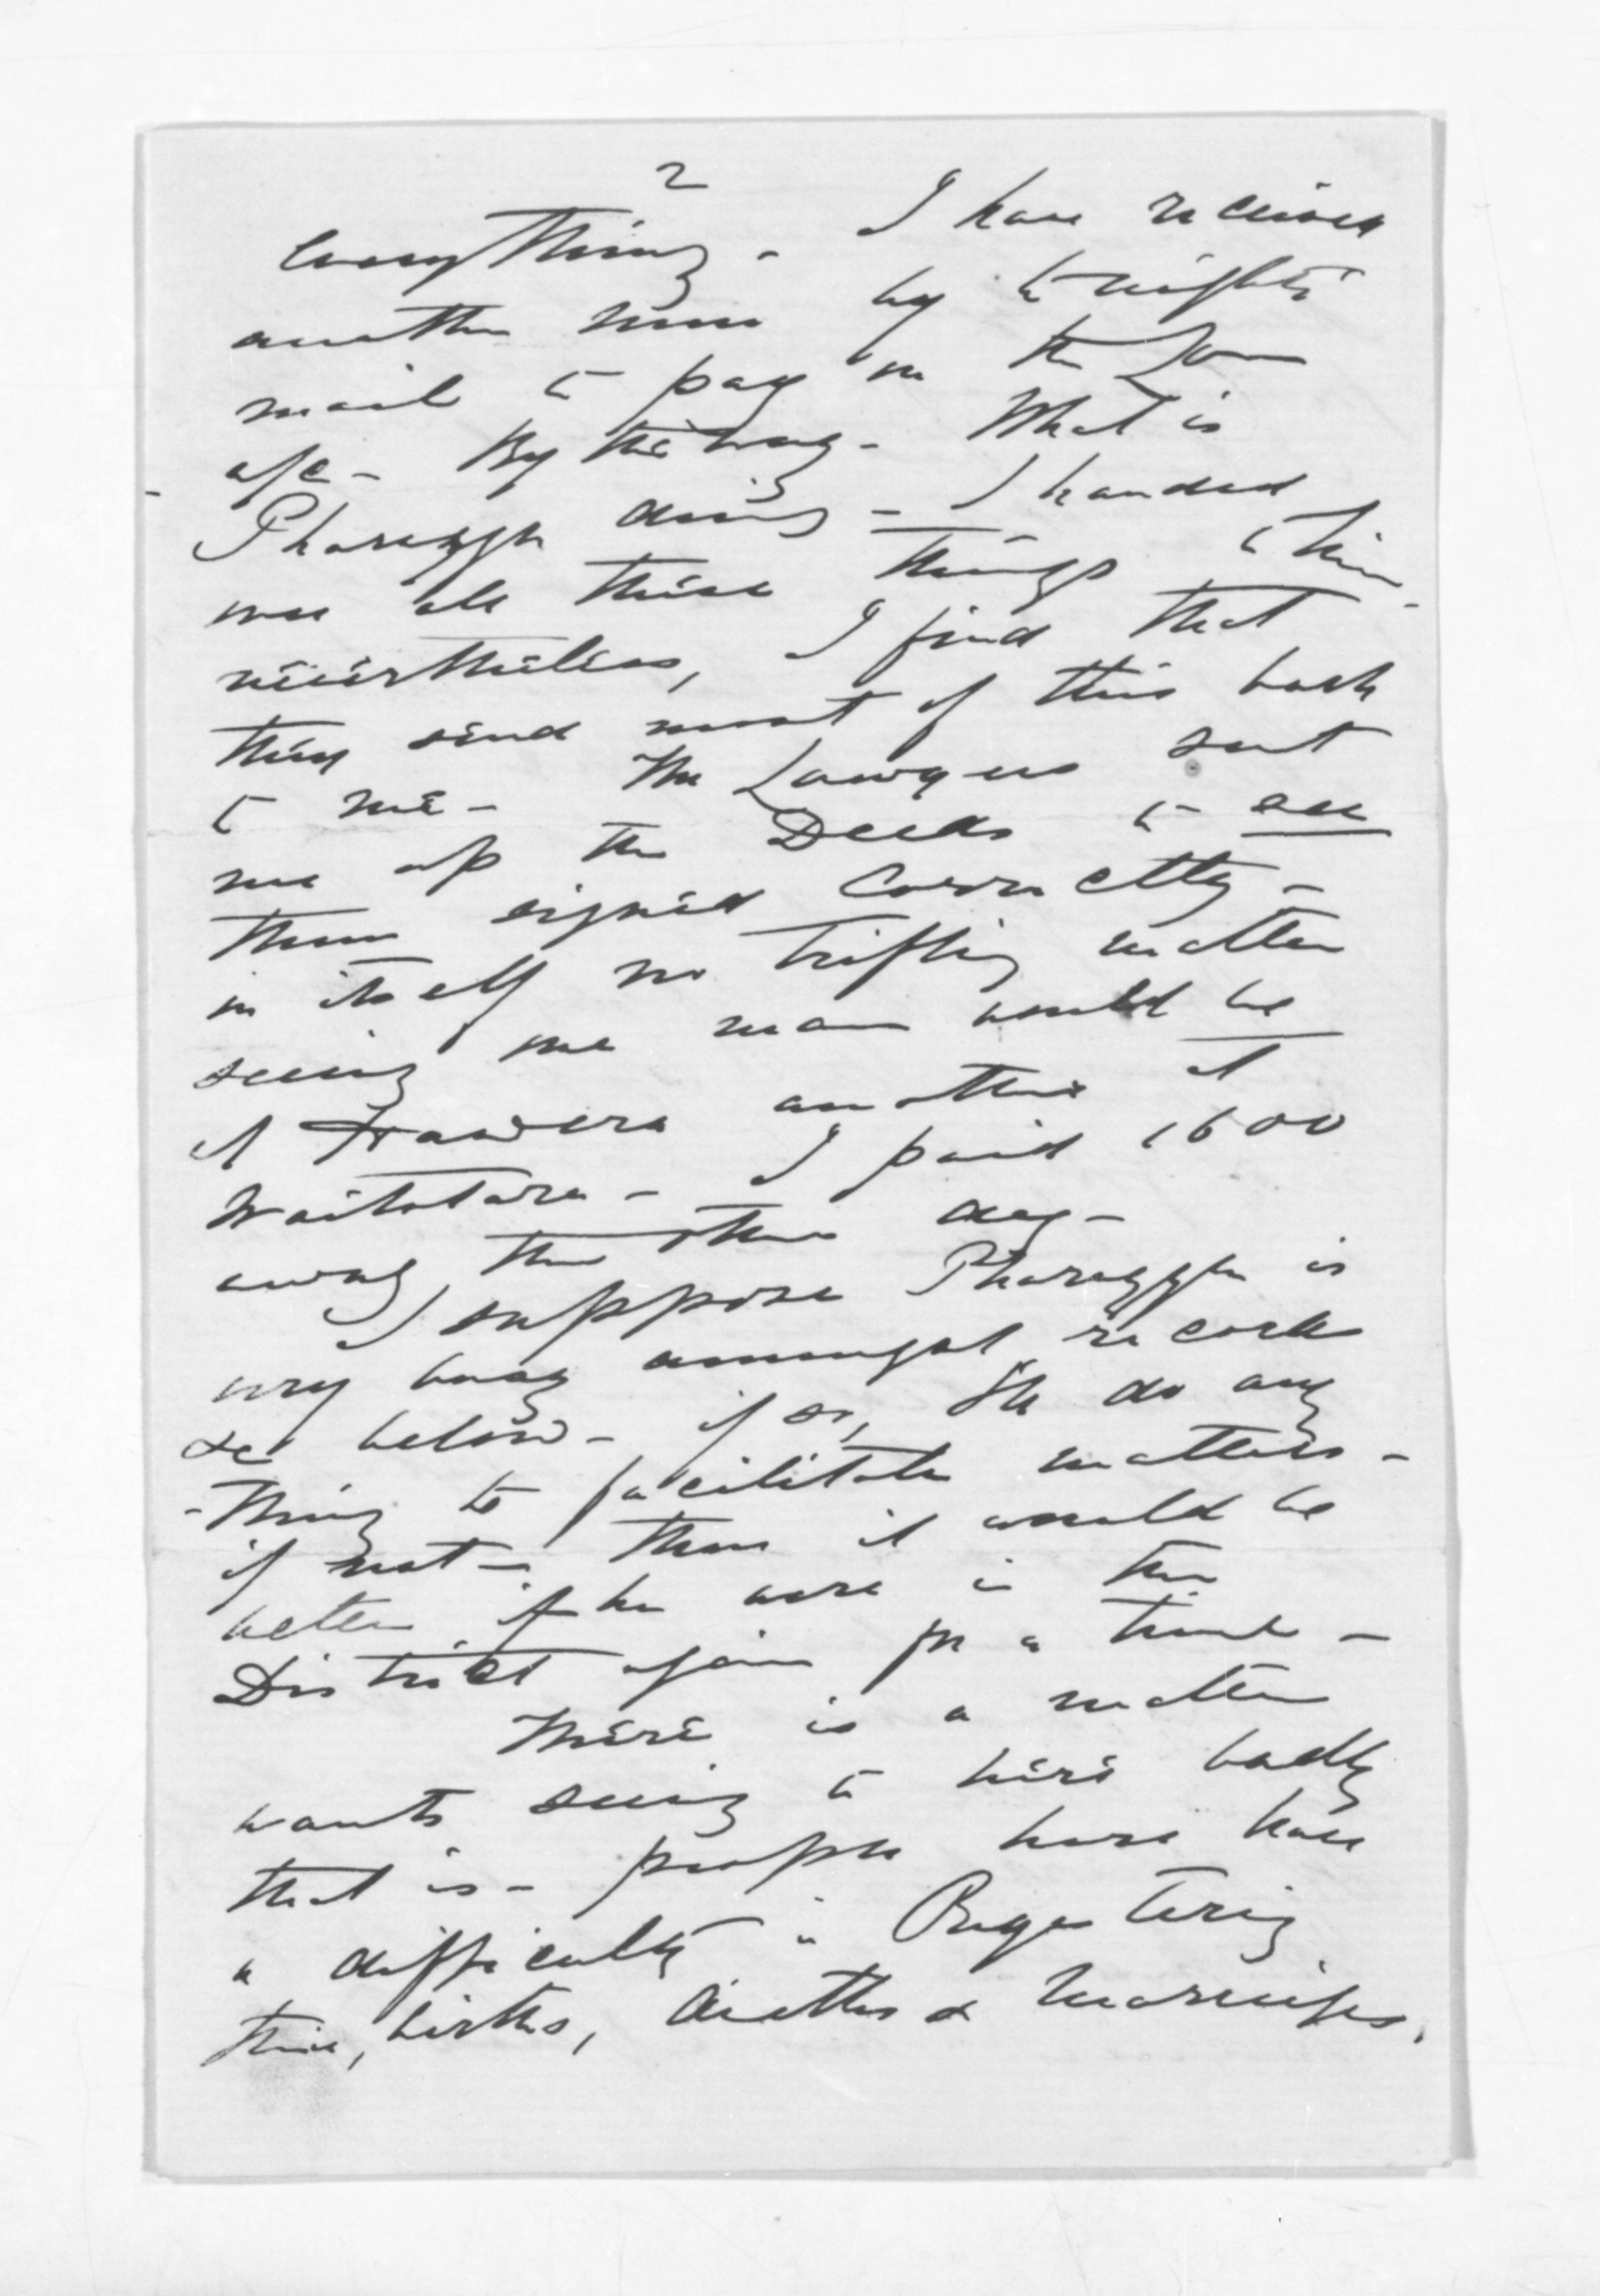 2
everything - I have received
another
by tonights
mail to pay in the Gov
a/c - By the way - What is
Pharazyn doing - I handed
over all these things to him -
nevertheless, I find that
they send most of this back
to me - The Lawyers sent
me up the Deeds to see
them signed correctly -
in itself no trifling matter
seeing one man would be
at Hawera another at
Waitotara - I paid 1600
away the other day -
I suppose Pharazyn is
very busy amongst records
&c below - if so, it'll do any
-thing to facilitate matters -
if not - then it would be
better if he were in the
District again for a time -
There is a matter
wants seeing to here badly
that is - people here have
a difficulty in Registering
their, births, deaths & marriages.